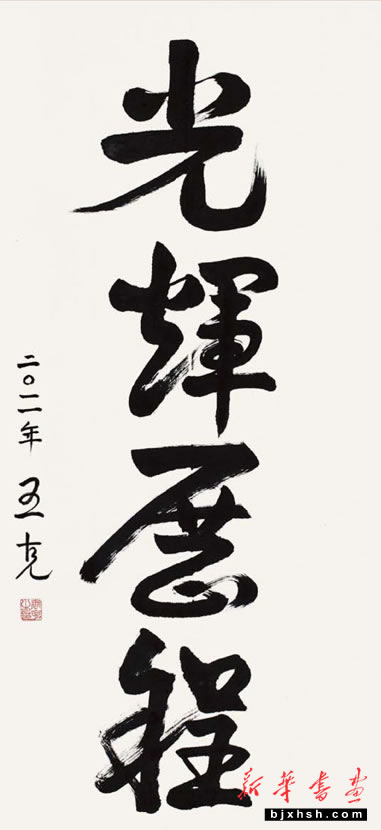 光輝歷程
二〇一一年 王克
新华书画
bjxhsh.com